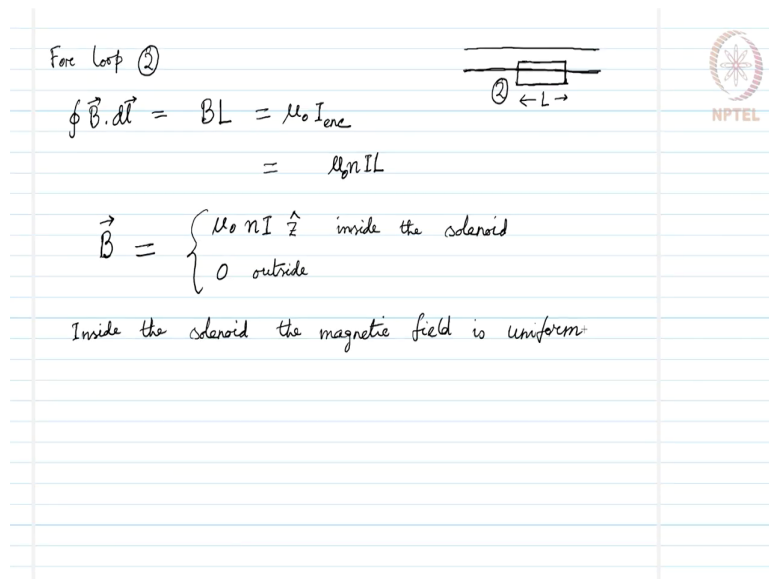 For loop ②
② ← L →
NPTEL
∮ B⃗ . dl⃗ = BL = μ₀ I_enc
= μ₀ n I L
B⃗ = { μ₀ n I ẑ inside the solenoid
0 outside
Inside the solenoid the magnetic field is uniform